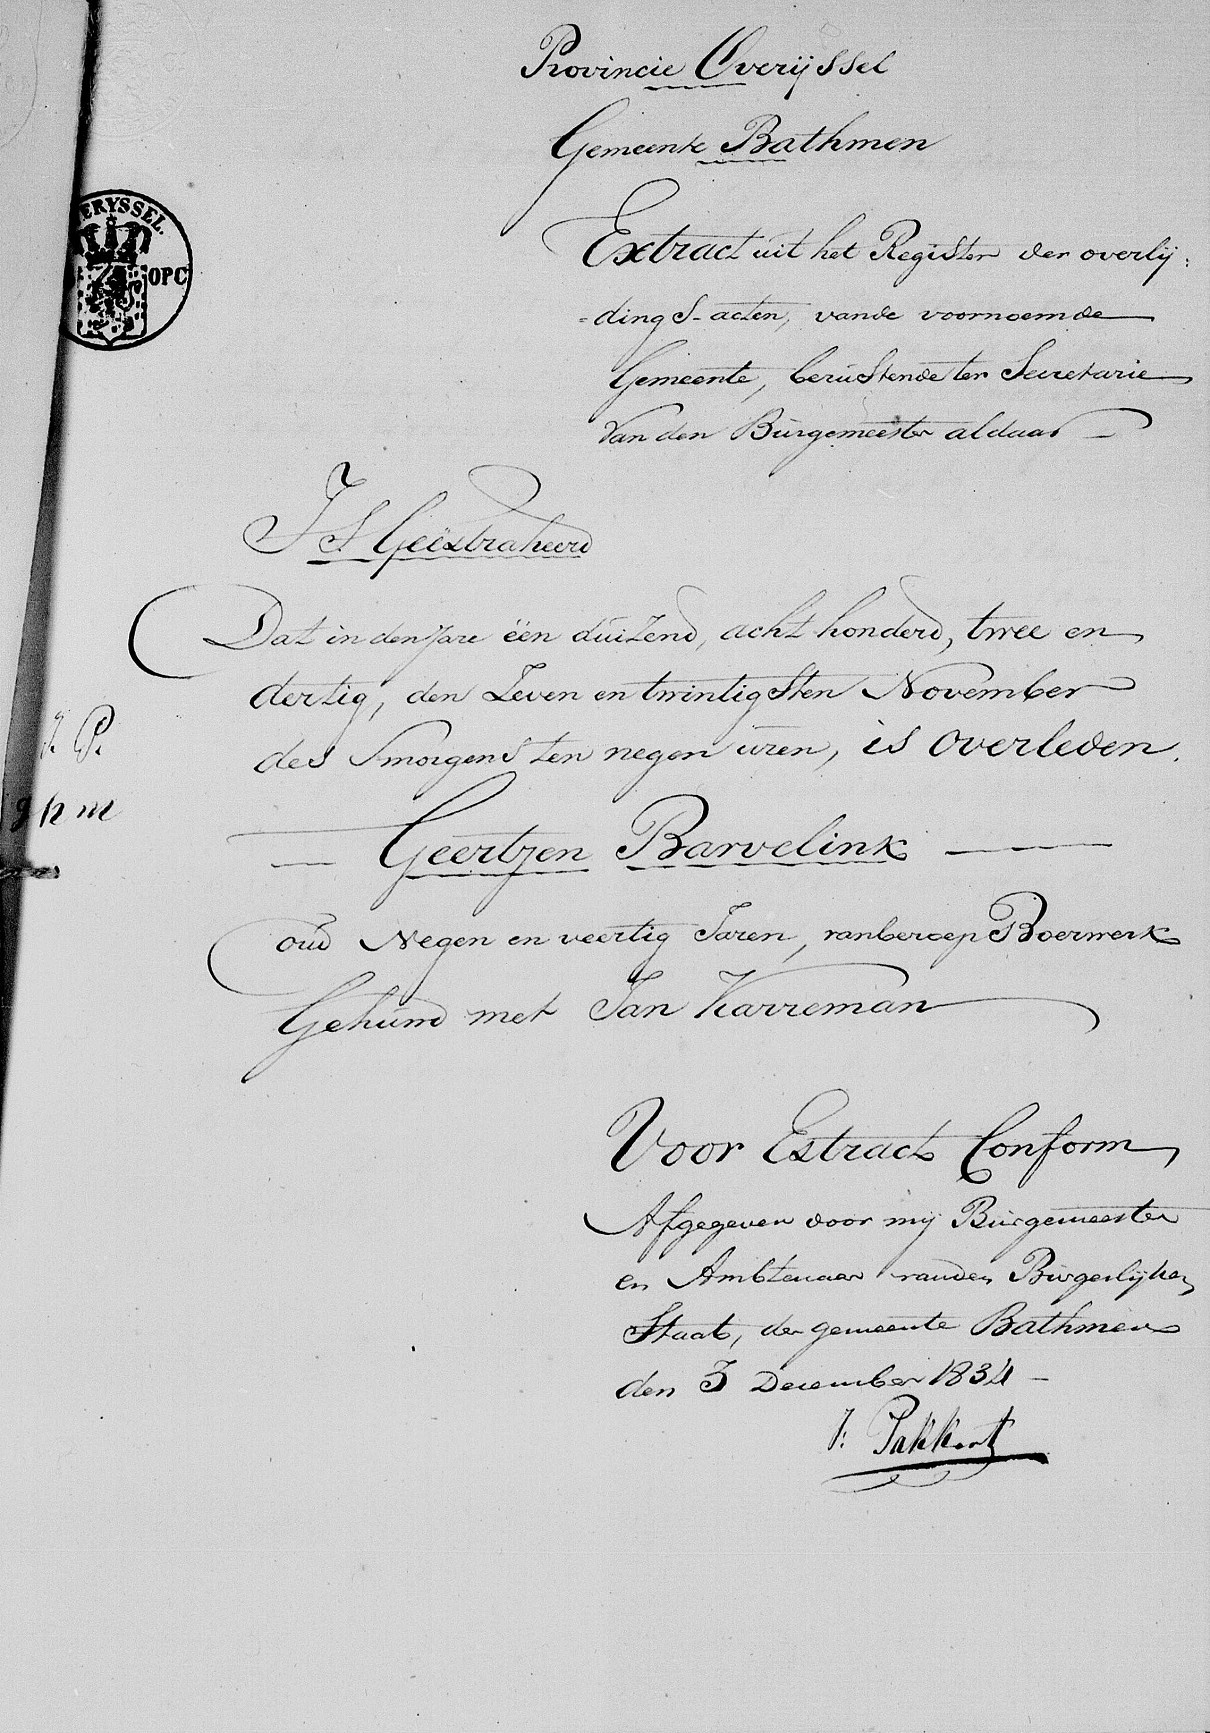 Provincie Overijssel
Gemeente Bathmen
ERYSSEL.
OPC
Extract uit het Register der overlij:
=dings-acten, vande voornoemde
Gemeente, berustende ter Secretarie
van den Burgemeester aldaar
Is Geëxtraheerd
Dat in den Jare één duizend, acht honderd, twee en
dertig, den Zeven en twintigsten November
des Smorgens ten negen uren, is overleden.
Geertjen Barvelink
oud Negen en veertig Jaren, van beroep Boerwerk
Gehuwd met Jan Karreman
Voor Extract Conform
Afgegeven door mij Burgemeester
en Ambtenaar van den Burgerlijken
Staat, der gemeente Bathmen
den 3 December 1834
J: Pakkert